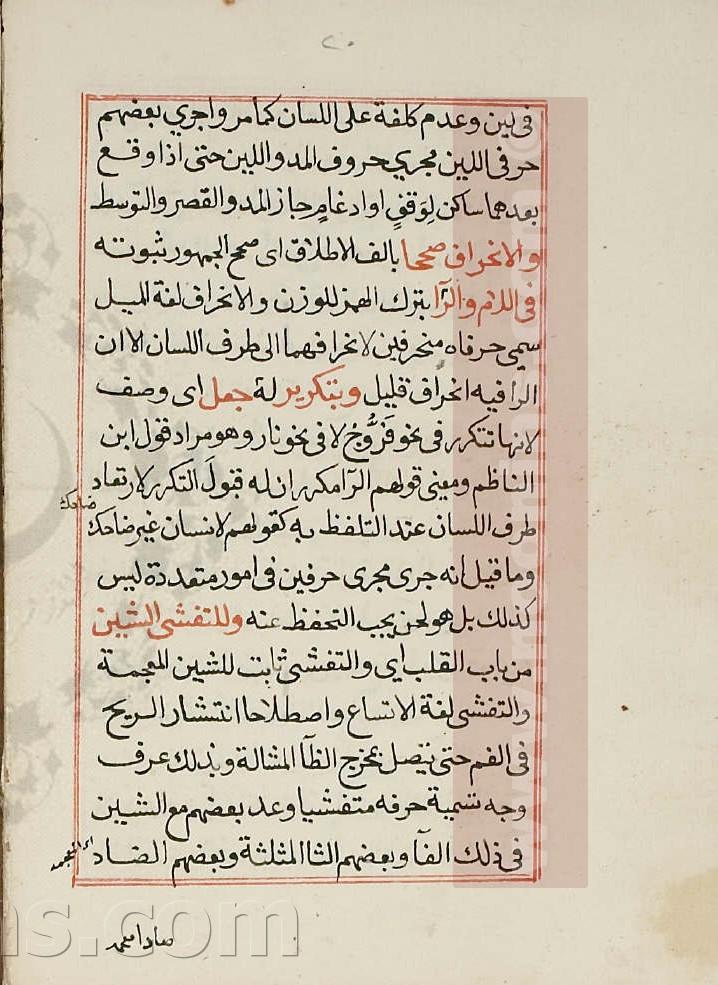 ٢٠
في لين وعدم كلفة على اللسان كما مر واجري بعضهم
حرفي اللين مجري حروف المد واللين حتى اذا وقع
بعدهما ساكن لِوَقفٍ او ادغامٍ جاز المد والقصر والتوسط
والانحراف صححا بالف الاطلاق اى صحح الجمهور ثبوته
في اللام والرَّا بترك الهمز للوزن والانحراف لغة الميل
سمي حرفاه منحرفين لانحرافهما الى طرف اللسان الا ان
الرا فيه انحراف قليل وبتكرير لهُ جعل اى وصف
لانها تتكرر في نحو فَرُّوْخ لا في نحو نار وهو مراد قول ابن
الناظم ومعنى قولهم الرآ مكرر ان له قبولَ التكرر لارتعاد
طرف اللسان عند التلفظ به كقولهم لانسان غير ضاحك
ضاحك
وما قيل انه جرى مجرى حرفين في امور متعددة ليس
كذلك بل هو لحن يجب التحفظ عنه وللتفشى الشين
من باب القلب اي والتفشى ثابت للشين المعجمة
والتفشى لغة الاتساع واصطلاحا انتشار الريح
في الفم حتى يتصل بمخرج الظآ المشالة وبذلك عرف
وجه تسمية حرفه متفشيا وعد بعضهم مع الشين
في ذلك الفآ وبعضهم الثا المثلثة وبعضهم الضاد
ns.com